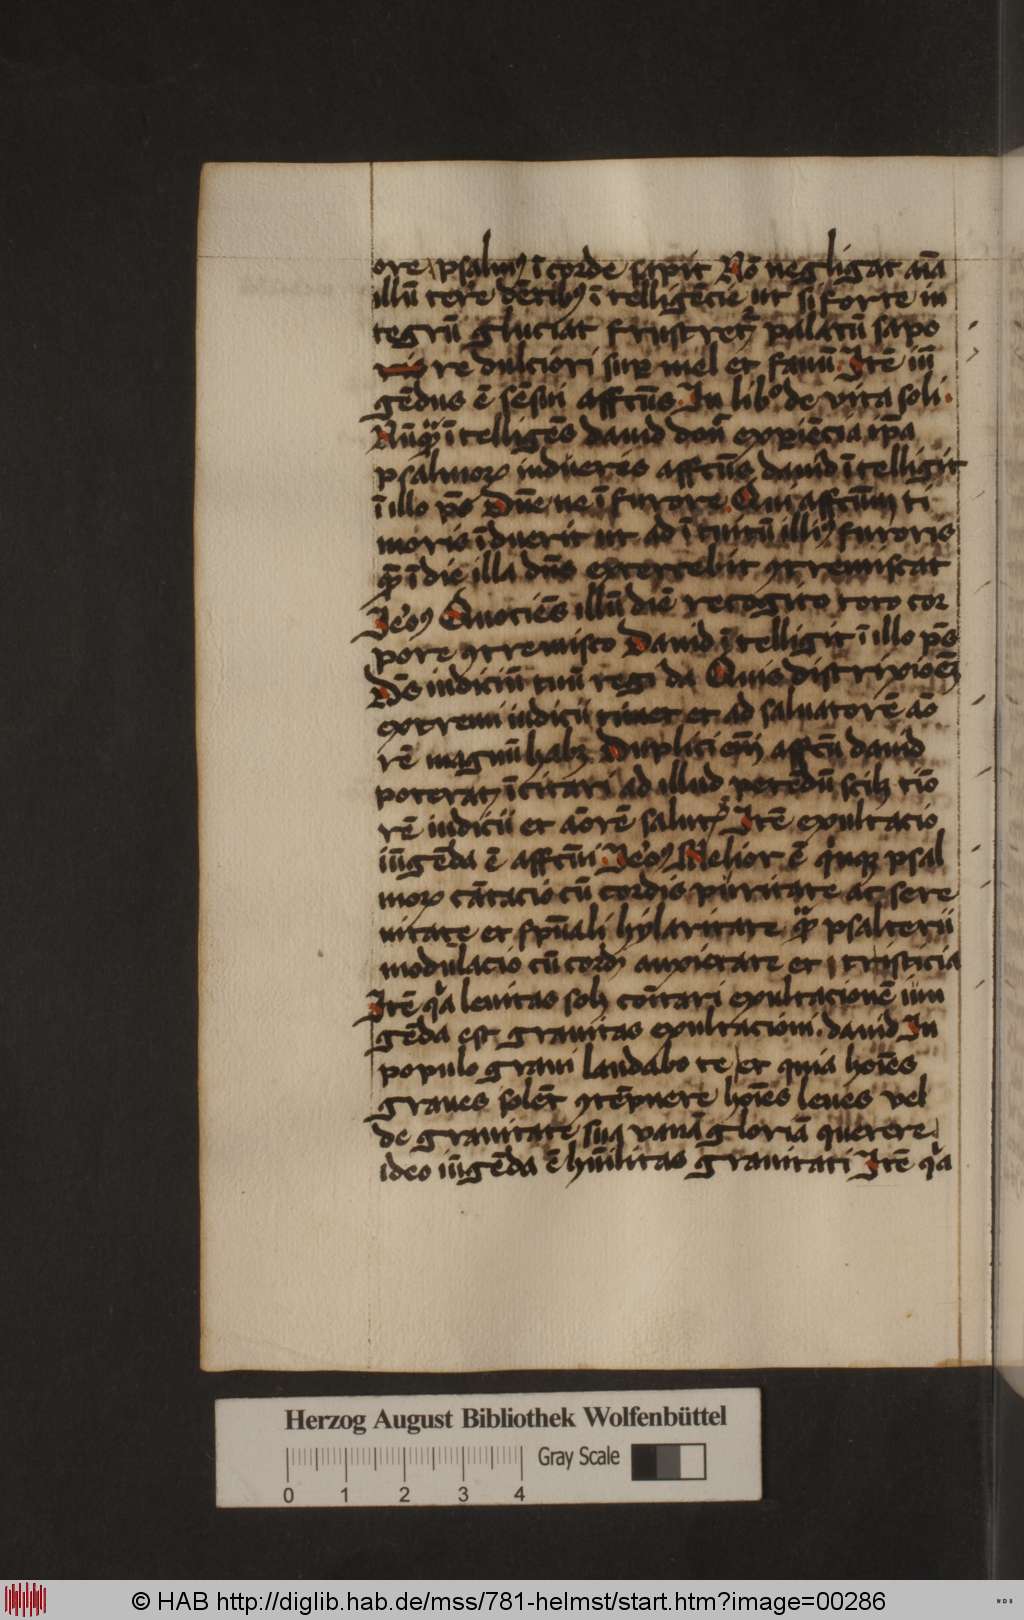 ore psalmꝯ ī corde sapit Nō negligat aīa
illū tere dētibꝯ ītelligēcie ut si forte in
tegrū gluciat frustret᷑ palatū sapo
re dulciori suꝑ mel et fauū Itē iū
gēdus ē sēsui affctūs In libᵒ de vita soli
Nūqᵃ̄ ītelligēs dauid donͨ exꝑiēcia ip̄a
psalmoꝝ indueris affctūs dauid ītelligit
ī illo pͦs Dn̄e ne ī furore Qui affctūm ti
moris īduerit ut ad ītuitū illiꝯ furoris
qᵃ̄ ī die illa dn̄s exercebit ꝯtremiscat
Jeꝰoꝯ Quociēs illū diē recogito toto cor
pore ꝯtremisco Dauid ītelligit ī illo pͦs
Ds̄ iudiciū tuū regi da Quis districcioēꝫ
extremi iudicii timet et ad saluatorē aō
rē magnū habꝫ Duplici em̄ affctū dauid
poterat ī citari ad illud petēdū scilꝫ tiō
rē iudicii et aōrē salutꝭ Itē exultacio
iūgēda ē affctūi Jeꝰoꝯ Melior ē qͥnqꝫ psal
moꝝ cātacio cū cordis puritate ac sere
nitate et spūali hylaritate qᵃ̄ psalterii
modulacio cū cordꝭ anxietate et tristicia
Itē qᵃ leuitas solꝫ cōitari exultacionē iun
gēda est grauitas exultacioni dauid In
populo graui laudabo te et quia hoīes
graues solēt ꝯtēpnere hoīes leues vel
de grauitate sua vanā gloriā querere
ideo iūgēda ē hūilitas grauitati Itē qᵃ
Herzog August Bibliothek Wolfenbüttel
Gray Scale
0 1 2 3 4
© HAB http://diglib.hab.de/mss/781-helmst/start.htm?image=00286